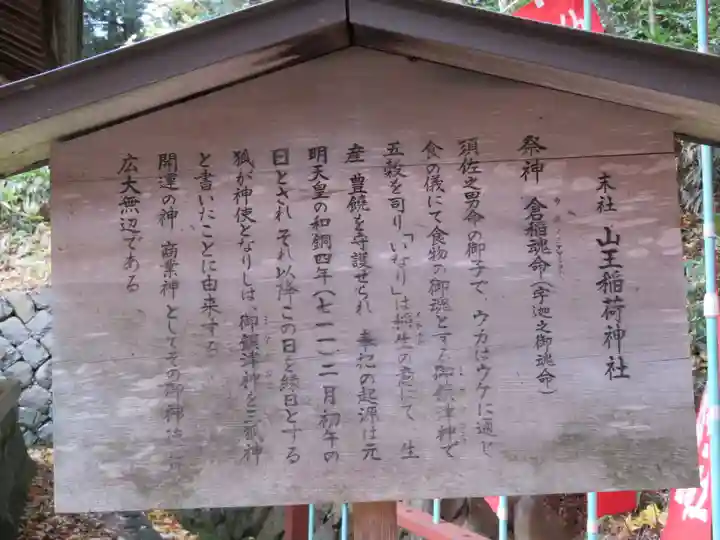 末社 山王稲荷神社
祭神 倉稲魂命(宇迦之御魂命)
須佐之男命の御子で、ウカはウケに通じ
食の儀にて食物の御魂とする御饌津神で
五穀を司り「いなり」は稲生の意にて 生
産 豊饒を守護せられ 奉祀の起源は元
明天皇の和銅四年(七一一)二月初午の
日とされ それ以降この日を縁日とする
狐が神使となりしは、御饌津神を三狐神
と書いたことに由来する
開運の神 商業神としてその御神
広大無辺である